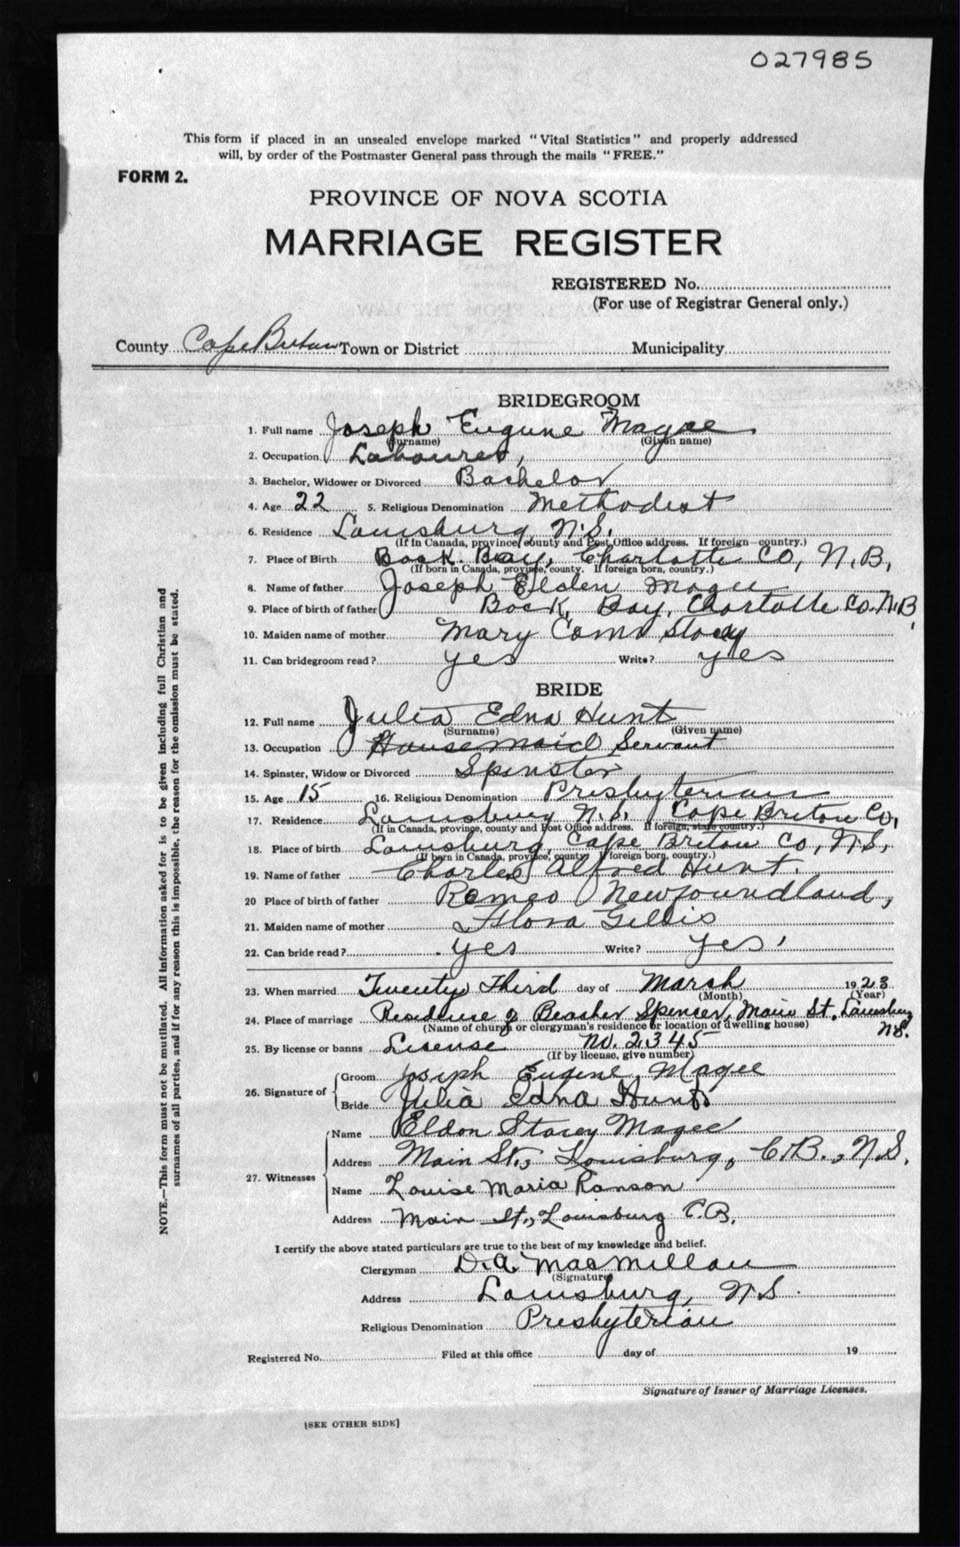 027985
This form if placed in an unsealed envelope marked "Vital Statistics" and properly addressed
will, by order of the Postmaster General pass through the mails "FREE."
FORM 2.
PROVINCE OF NOVA SCOTIA
MARRIAGE REGISTER
REGISTERED No.
(For use of Registrar General only.)
County Cape Breton Town or District Municipality
BRIDEGROOM
1. Full name Joseph Eugune Magee.
(Surname) (Given name)
2. Occupation Labourer,
3. Bachelor, Widower or Divorced Bachelor
4. Age 22 5. Religious Denomination Methodist
6. Residence Louisburg N.S.
(If in Canada, province, county and Post Office address. If foreign—country.)
7. Place of Birth Back Bay, Charlotte Co, N.B,
(If born in Canada, province, county. If foreign born, country.)
8. Name of father Joseph Elden Magee
9. Place of birth of father Back Bay, Charlotte Co. N.B,
10. Maiden name of mother Mary Stacey
11. Can bridegroom read? yes Write? yes
BRIDE
12. Full name Julia Edna Hunt
(Surname) (Given name)
13. Occupation Housemaid Servant
14. Spinster, Widow or Divorced Spinster
15. Age 15 16. Religious Denomination Presbyterian
17. Residence Louisburg N.S. Cape Breton Co,
(If in Canada, province, county and Post Office address. If foreign, state country.)
18. Place of birth Louisburg, Cape Breton Co, N.S,
(If born in Canada, province, county. If foreign born, country.)
19. Name of father Charles Alfred Hunt.
20 Place of birth of father Rameo Newfoundland,
21. Maiden name of mother Flora Gillis
22. Can bride read? yes Write? yes,
23. When married Twenty Third day of March 1923
(Month) (Year)
24. Place of marriage Residence of Beacher Spencer, Main St, Louisburg
(Name of church or clergyman's residence or location of dwelling house) N.S.
25. By license or banns License No. 2345
(If by license, give number)
26. Signature of Groom Joseph Eugene Magee
Bride Julia Edna Hunt
27. Witnesses Name Eldon Stacey Magee
Address Main St., Louisburg, C.B., N.S.
Name Louise Maria Ranson
Address Main St., Louisburg C.B.
I certify the above stated particulars are true to the best of my knowledge and belief.
Clergyman D.A. MacMillan
(Signature)
Address Louisburg, N.S.
Religious Denomination Presbyterian
Registered No. Filed at this office day of 19
Signature of Issuer of Marriage Licenses.
[SEE OTHER SIDE]
NOTE.—This form must not be mutilated. All information asked for is to be given including full Christian and
surnames of all parties, and if for any reason this is impossible, the reason for the omission must be stated.